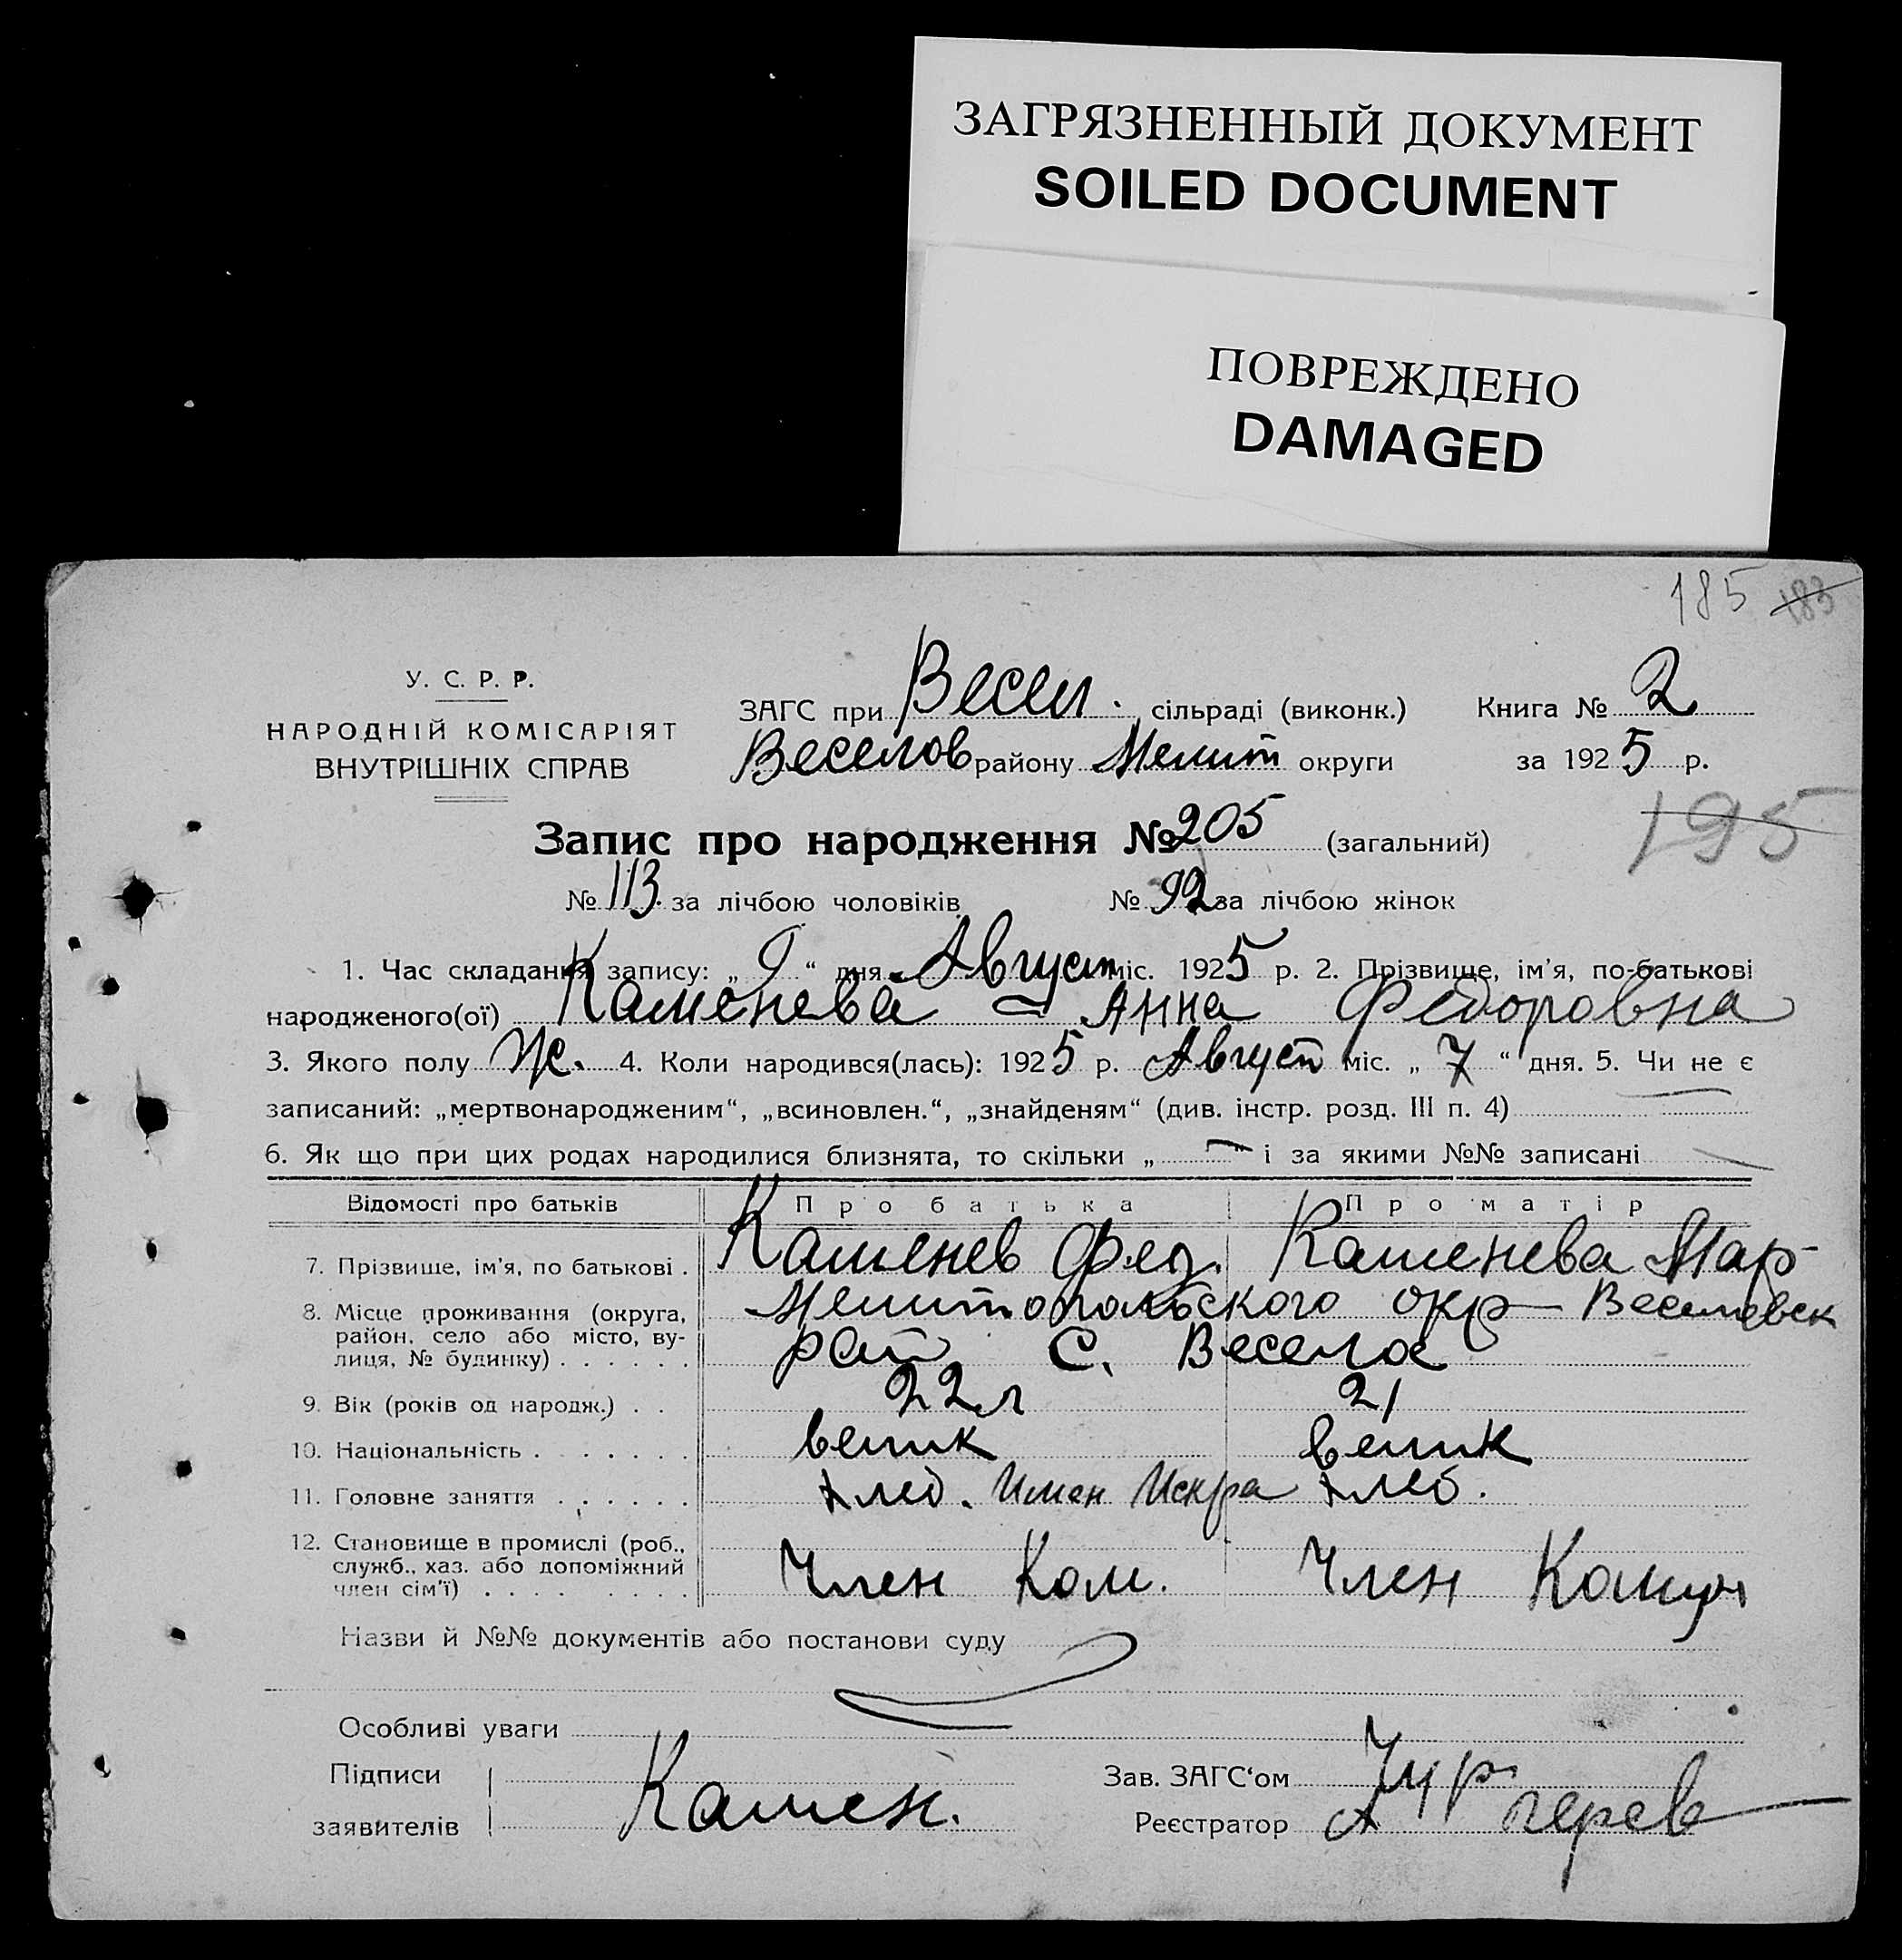 ЗАГРЯЗНЕННЫЙ ДОКУМЕНТ
SOILED DOCUMENT
ПОВРЕЖДЕНО
DAMAGED
185 183
У. С. Р. Р.
НАРОДНІЙ КОМІСАРІЯТ
ВНУТРІШНІХ СПРАВ
ЗАГС при Весел. сільраді (виконк.) Книга № 2
Веселов району Мелит округи за 1925 р.
195
Запис про народження № 205 (загальний)
№ 113. за лічбою чоловіків № 92 за лічбою жінок
1. Час складання запису: „ 9 “ дня Август міс. 1925 р. 2. Прізвище, ім'я, по-батькові
народженого(ої) Каменева Анна Федоровна
3. Якого полу Ж. 4. Коли народився(лась): 1925 р. Август міс. „ 7 “ дня. 5. Чи не є
записаний: „мертвонародженим“, „всиновлен.“, „знайденям“ (див. інстр. розд. III п. 4)
6. Як що при цих родах народилися близнята, то скільки „ “ і за якими №№ записані
Відомості про батьків Про батька Про матір
7. Прізвище, ім'я, по батькові . Каменев Фед. Каменева Мар-
8. Місце проживання (округа, район, село або місто, вулиця, № будинку) . . . . . . Мелитопольского окр Веселовск
рай С. Веселое
9. Вік (років од народж.) . . 22 л 21
10. Національність . . . . . . . велик велик
11. Головне заняття . . . . . . хлеб. Имен Искра хлеб.
12. Становище в промислі (роб., служб., хаз. або допоміжний член сім'ї) . . . . . . . . Член Ком. Член Комун
Назви й №№ документів або постанови суду
Особливі уваги
Підписи
заявителів Камен.
Зав. ЗАГС'ом
Реєстратор